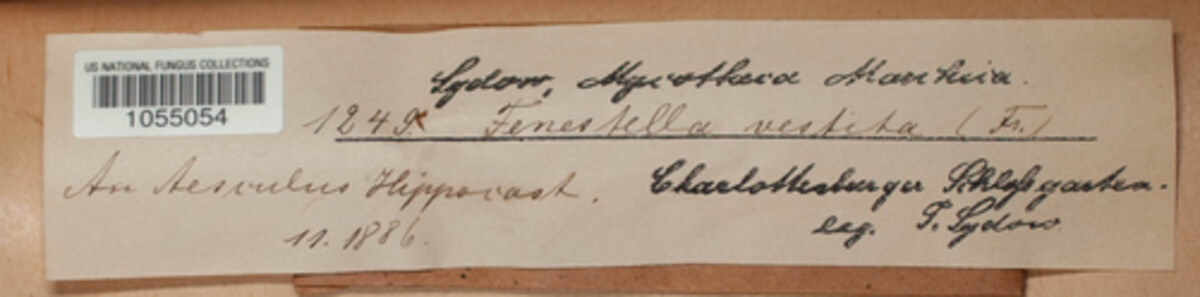 US NATIONAL FUNGUS COLLECTIONS
1055054
Sydow, Mycotheca Marchica.
1249. Fenestella vestita (Fr.)
An Aesculus Hippocast.
11. 1886.
Charlottenburger Schloßgarten.
leg. P. Sydow.